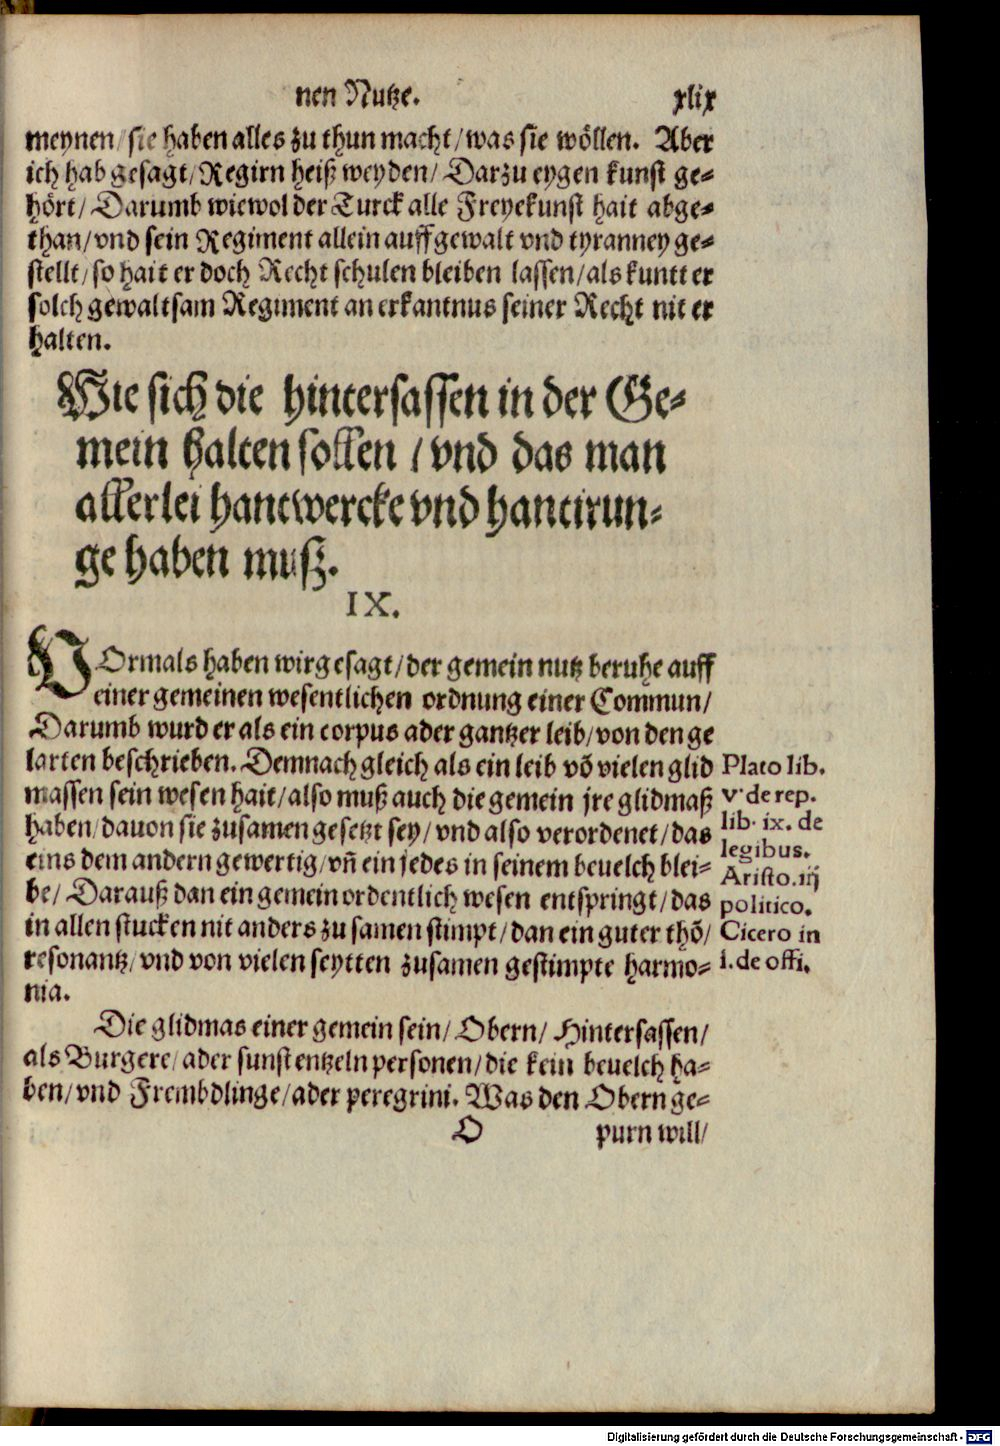 nen Nutze. xlix
meynen/sie haben alles zu thun macht/was sie wöllen. Aber
ich hab gesagt/Regirn heiß weyden/Darzu eygen kunst ge=
hört/Darumb wiewol der Turck alle Freyekunst hait abge=
than/vnd sein Regiment allein auff gewalt vnd tyranney ge=
stellt/so hait er doch Recht schulen bleiben lassen/als kuntt er
solch gewaltsam Regiment an erkantnus seiner Recht nit er
halten.
Wie sich die hintersassen in der Ge=
mein halten sollen/vnd das man
allerlei hantwercke vnd hantirun=
ge haben muß.
IX.
VOrmals haben wir gesagt/der gemein nutz beruhe auff
einer gemeinen wesentlichen ordnung einer Commun/
Darumb wurd er als ein corpus ader gantzer leib/von den ge
larten beschrieben. Demnach gleich als ein leib võ vielen glid
massen sein wesen hait/also muß auch die gemein jre glidmaß
haben/dauon sie zusamen gesetzt sey/vnd also verordenet/das
eins dem andern gewertig/vñ ein jedes in seinem beuelch blei=
be/Darauß dan ein gemein ordentlich wesen entspringt/das
in allen stucken nit anders zu samen stimpt/dan ein guter thõ/
resonantz/vnd von vielen seytten zusamen gestimpte harmo=
nia.
Plato lib.
v. de rep.
lib. ix. de
legibus.
Aristo. iij
politico.
Cicero in
i. de offi.
Die glidmas einer gemein sein/Obern/Hintersassen/
als Burgere/ader sunst entzeln personen/die kein beuelch ha=
ben/vnd Frembdlinge/ader peregrini. Was den Obern ge=
O purn will/
Digitalisierung gefördert durch die Deutsche Forschungsgemeinschaft - DFG